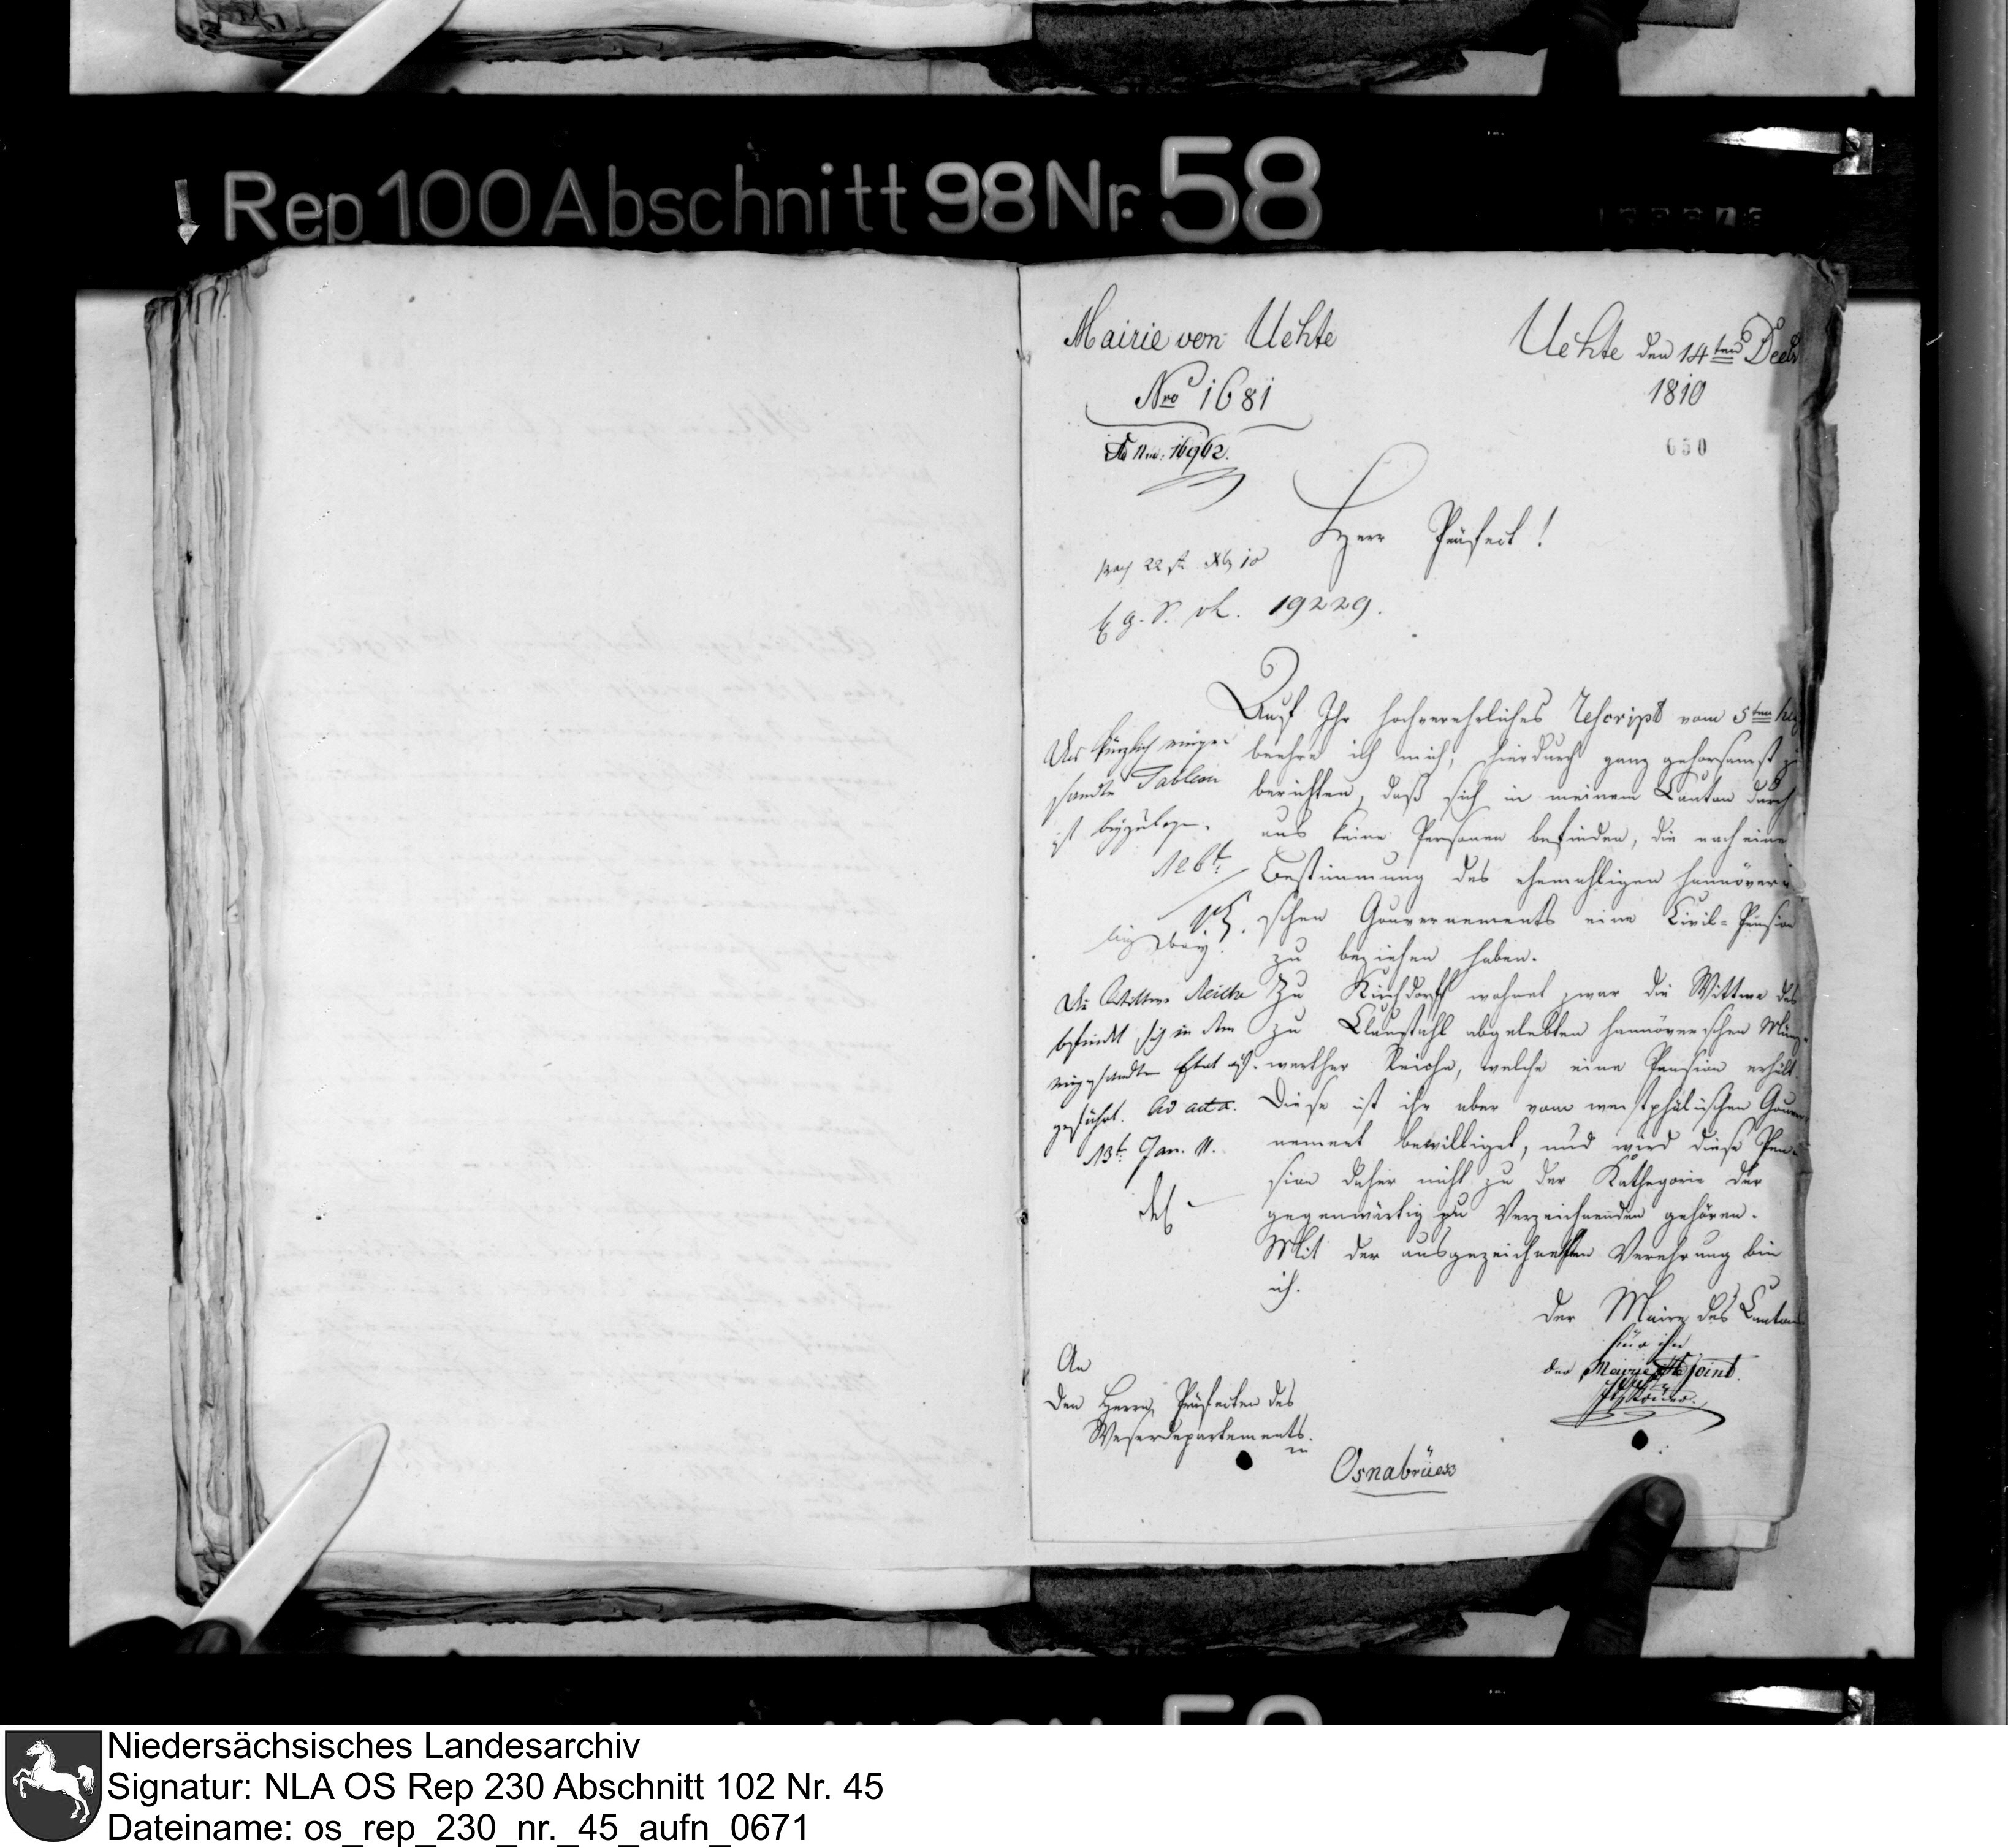 Rep. 100 Abschnitt 98 Nr. 58
Mairie von Uchte
Nro 1681
Nro. 16962.
Uchte den 14ten Decbr
1810
650
Herr Präfect!
19229.
Auf Ihr hochverehrliches Rescript vom 5ten
beehre ich mich, hierdurch ganz gehorsamst zu
berichten, daß sich in meinem Canton durch
aus keine Personen befinden, die nach einer
Bestimmung des ehemahligen hannöveri
schen Gouvernements eine Civil-Pension
zu beziehen haben.
Zu Kirchdorff wohnet zwar die Wittwe des
zu Clausthal abgelebten hannöverschen Münz-
Reiche, welche eine Pension erhält.
Diese ist ihr aber vom westphälischen Gouver
nement bewilliget, und wird diese Pen-
sion daher nicht zu der Kathegorie der
gegenwärtig zu Verzeichnenden gehören.
Mit der ausgezeichnetsten Verehrung bin
ich.
Der Maire des Cantons
für ihn
der Mairie Adjoint.
Das kürzlich einge-
sandte Tableau
ist beyzulegen.
Die Wittwe Reiche
befindet sich in dem
eingesandten Etat auf-
geführt. Ad acta.
13t. Jan. 11.
An
Den Herrn Präfecten des
Weserdepartements.
in
Osnabrück
58
Niedersächsisches Landesarchiv
Signatur: NLA OS Rep 230 Abschnitt 102 Nr. 45
Dateiname: os_rep_230_nr._45_aufn_0671